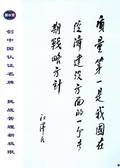 质量第一是我国在
经济建设方面的一个长
期战略方针
江泽民
创中国认证名牌